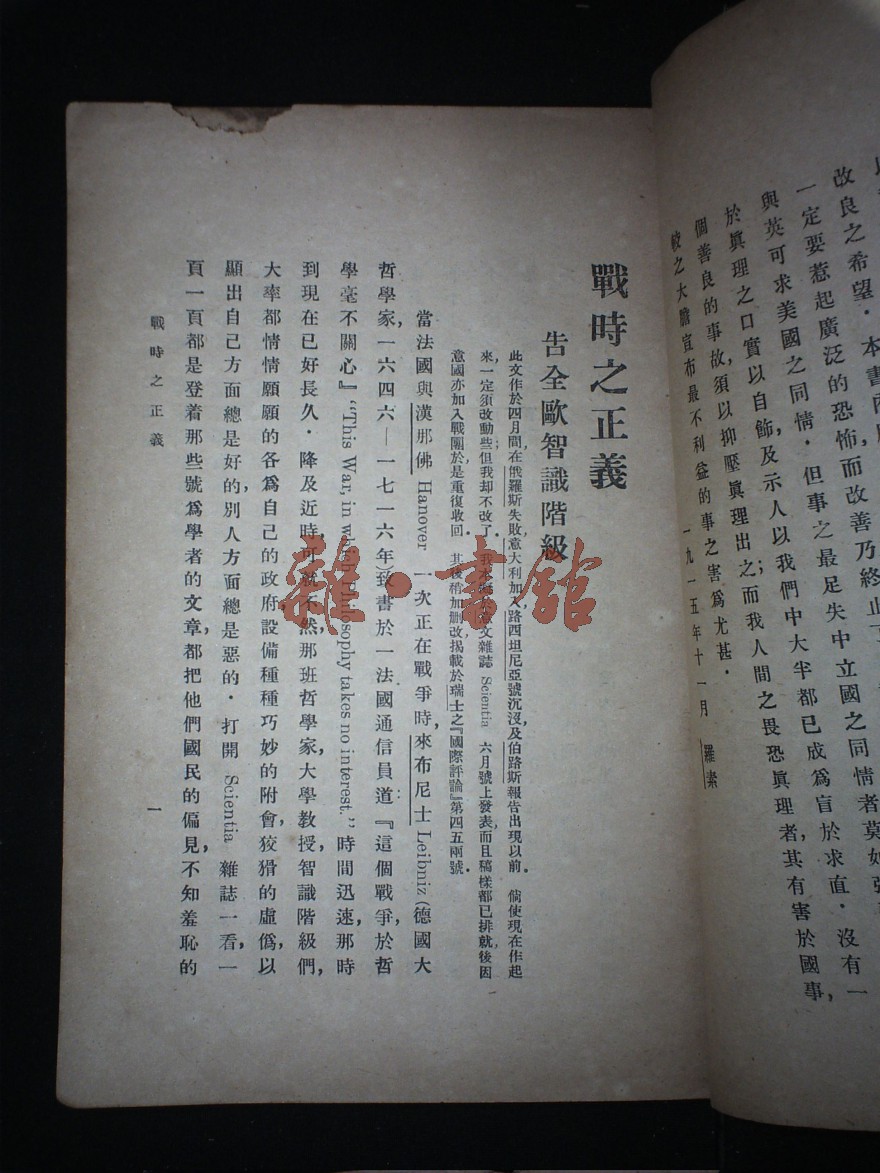 改良之希望．本書兩
一定要惹起廣泛的恐怖，而改善乃終止
與英可求美國之同情．但事之最足失中立國之同情者莫如
於眞理之口實以自飾，及示人以我們中大半都已成爲盲於求直．沒有一
個善良的事故，須以抑壓眞理出之；而我人間之畏恐眞理者，其有害於國事，
較之大膽宣布最不利益的事之害爲尤甚．
一九一五年十一月 羅素
戰時之正義
告全歐智識階級
此文作於四月間，在俄羅斯失敗，意大利加入，路西坦尼亞號沉沒，及伯路斯報告出現以前．倘使現在作起
來一定須改動些但我却不改了．我本 文雜誌 Scientia 六月號上發表，而且稿樣都已排就，後因
意國亦加入戰團，於是重復收回．其後稍加刪改，揭載於瑞士之『國際評論』第四五兩號．
當法國與漢那佛 Hanover 一次正在戰爭時，來布尼士 Leibniz（德國大
哲學家，一六四六—一七一六年）致書於一法國通信員道：『這個戰爭，於哲
學毫不關心』“This War, in which Philosophy takes no interest.” 時間迅速，那時
到現在已好長久．降及近時可就不然，那班哲學家，大學教授，智識階級們，
大率都情情願願的各爲自己的政府，設備種種巧妙的附會，狡猾的虛僞，以
顯出自己方面總是好的，別人方面總是惡的．打開 Scientia 雜誌一看，一
頁一頁都是登着那些號爲學者的文章，都把他們國民的偏見，不知羞恥的
戰時之正義
一
雜·書館